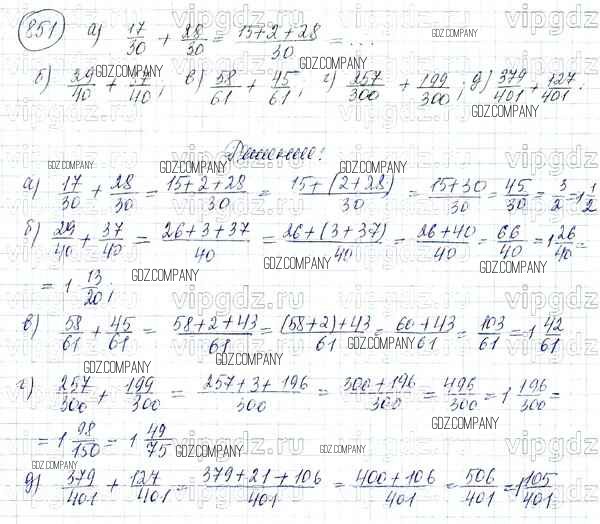 851 а) 17/30 + 28/30 = (15+2+28)/30 = ...
б) 29/40 + 37/40; в) 58/61 + 45/61; г) 257/300 + 199/300; д) 379/401 + 127/401.
Решение:
а) 17/30 + 28/30 = (15+2+28)/30 = (15+(2+28))/30 = (15+30)/30 = 45/30 = 3/2 = 1 1/2
б) 29/40 + 37/40 = (26+3+37)/40 = (26+(3+37))/40 = (26+40)/40 = 66/40 = 1 26/40 =
= 1 13/20;
в) 58/61 + 45/61 = (58+2+43)/61 = ((58+2)+43)/61 = (60+43)/61 = 103/61 = 1 42/61
г) 257/300 + 199/300 = (257+3+196)/300 = (300+196)/300 = 496/300 = 1 196/300 =
= 1 98/150 = 1 49/75
д) 379/401 + 127/401 = (379+21+106)/401 = (400+106)/401 = 506/401 = 1 105/401
vipgdz.ru
GDZ.COMPANY